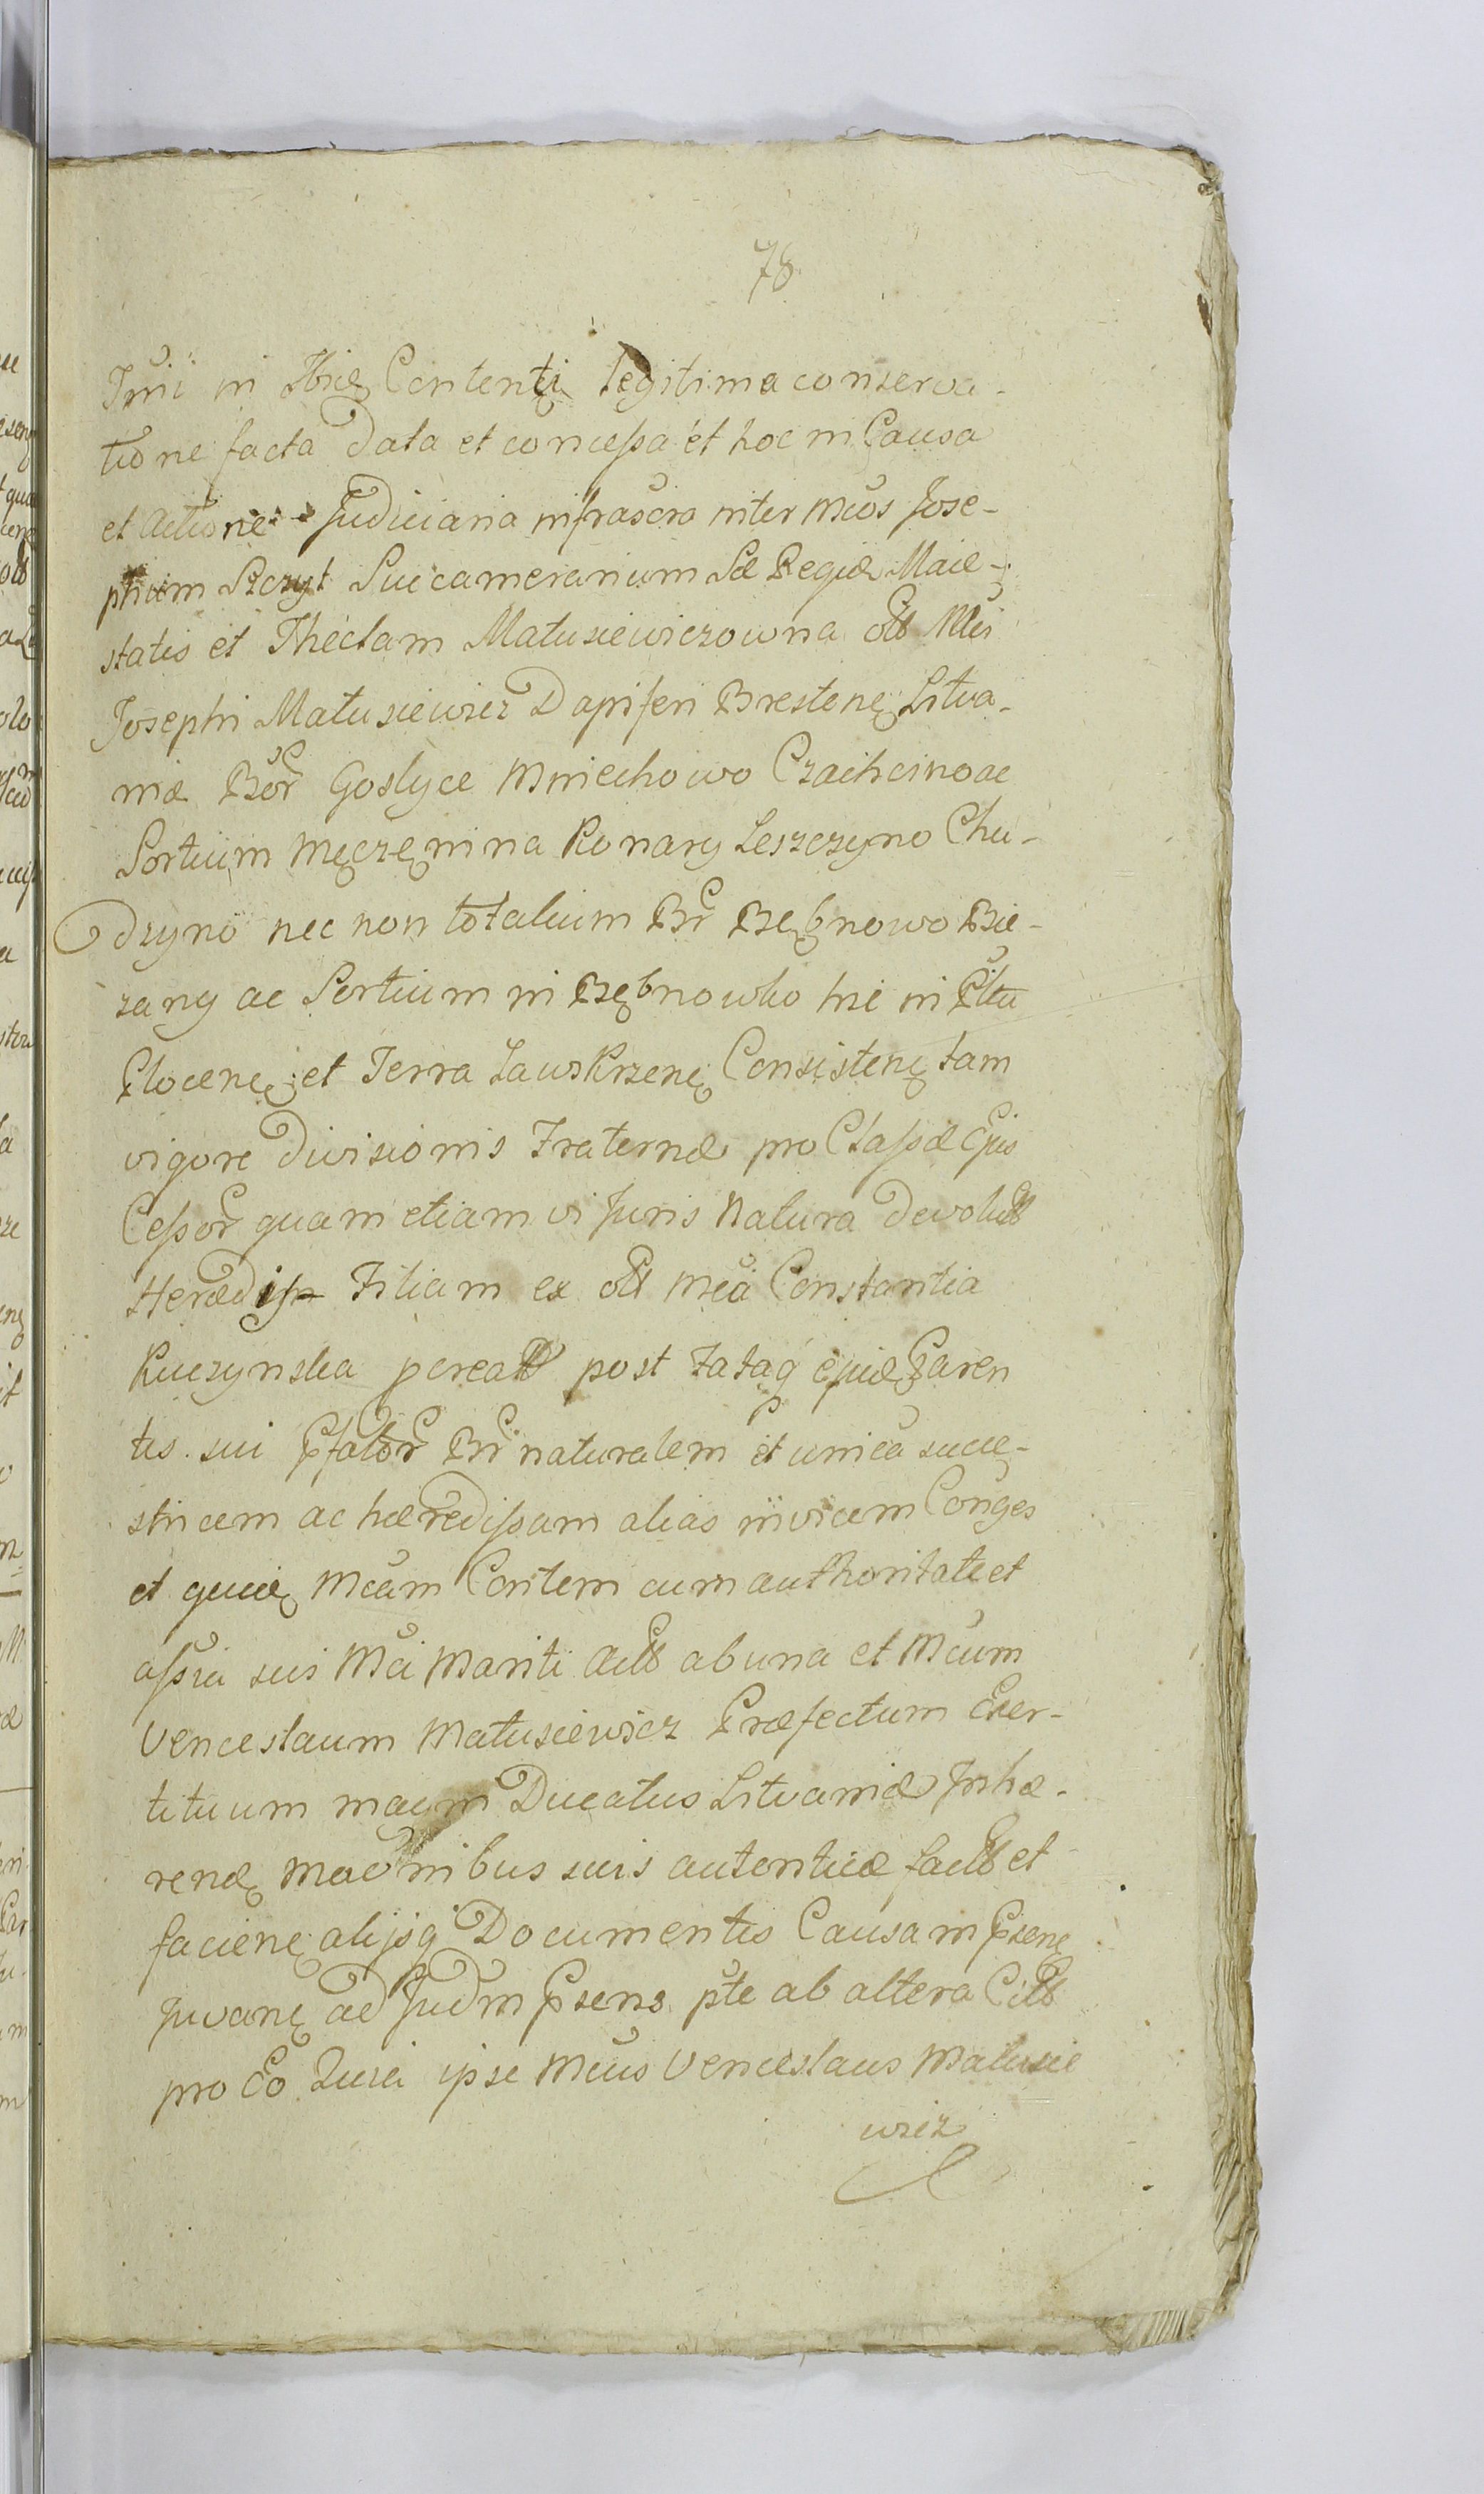 78
in Contenti legitima conserva-
tione facta Data et concessa et hoc in Causa
et Actione Judiciaria infrascra inter Mcos Jose-
phum Szczyt Succamerarium Sæ Regiæ Maie-
statis et Theclam Matusiewiczowna olt Mci
Josephi Matusiewicz Dapiferi Brestenę Litva-
niæ Bor Goslyce Mniechowo Czachcino ac
Sortium Męczęnina Konary Leszczyno Chu-
dzyno nec non totalium Br Bębnowo Bie-
zany ac Sortium in Bębnowko hic in Pltu
Plocenę et Terra Zawskrzenę Consistenę tam
vigore Divisionis Fraternæ pro Classæ Ejus
Cessor quam etiam vi Juris Natura Devolutt
Filiam ex olt Mca Constantia
Kuczynska pcreatt post fataq ejuæ Paren
tis sui Pfator Br naturalem et unica succe-
stricem ac hæredissam alias invicem Conges
et Mcam Contem cum authoritate et
assia sui Mci Mariti Actt ab una et Mcum
Venceslaum Matusiewicz Præfectum Exer-
tituum Magni Ducatus Litvaniæ Inhæ-
renę suis autenticæ factt et
facienę alijsq Documentis Causam Psenę
Juvanę ad Judm Psens pte ab altera Citt
pro Eo Quia ipse Mcus Venceslaus Matusie
wicz